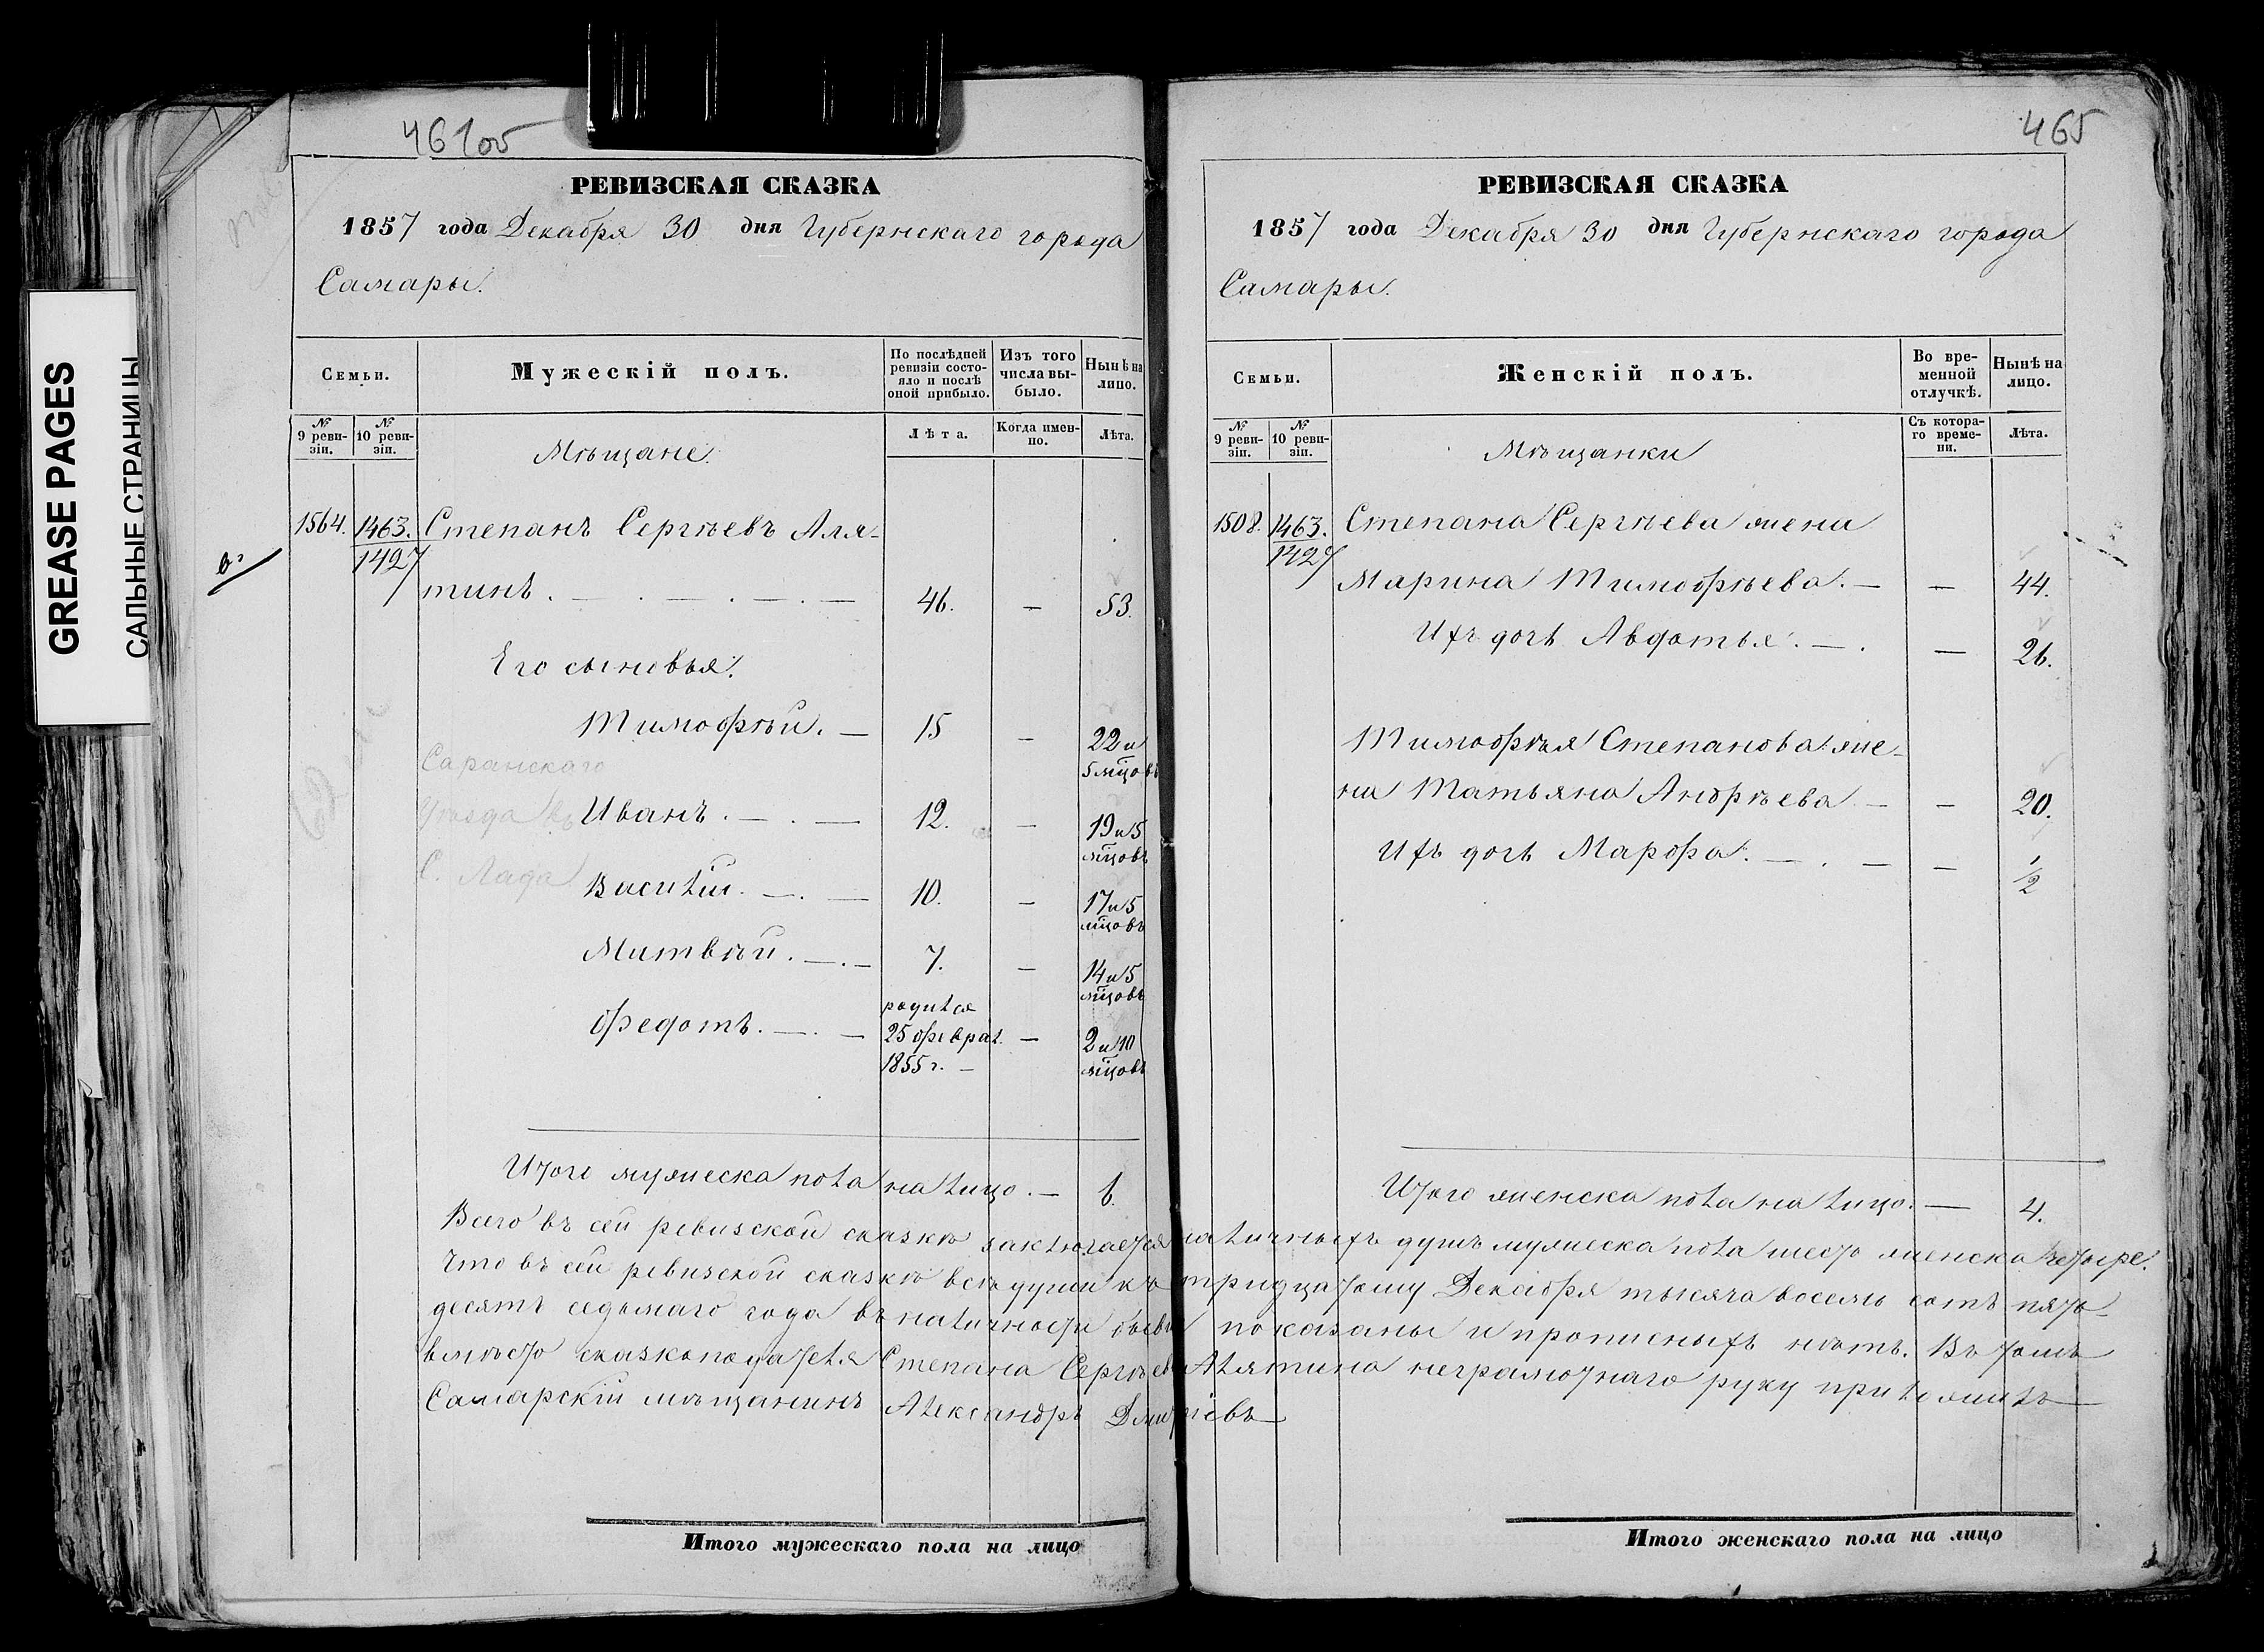 GREASE PAGES
САЛЬНЫЕ СТРАНИЦЫ
461об
РЕВИЗСКАЯ СКАЗКА
1857 года Декабря 30 дня Губернскаго города
Самары.
Семьи.
Мужескій полъ.
По послѣдней ревизіи состояло и послѣ оной прибыло.
Изъ того числа выбыло.
Нынѣ на лицо.
№ 9 ревизіи.
№ 10 ревизіи.
Лѣта.
Когда именно.
Лѣта.
Мѣщане.
1564. 1463. Степанъ Сергѣевъ Аля-
1427
тинъ. 46. — 53.
Его сыновья:
Тимофѣй. — 15 — 22 и
Саранскаго 5 мѣцовъ
Уѣзда въ Иванъ. — 12. — 19 и 5
мѣцовъ
С. Лада Василій. — 10. — 17 и 5
мѣцовъ
Матвѣй. — 7. — 14 и 5
мѣцовъ
родился
Федотъ. — 25 феврал. — 2 и 10
1855 г. — мѣцовъ
Итого мужеска пола на лицо. — 6.
Итого мужескаго пола на лицо
465
РЕВИЗСКАЯ СКАЗКА
1857 года Декабря 30 дня Губернскаго города
Самары.
Семьи.
Женскій полъ.
Во временной отлучкѣ.
Нынѣ на лицо.
№ 9 ревизіи.
№ 10 ревизіи.
Съ котораго времени.
Лѣта.
Мѣщанки
1508. 1463. Степана Сергѣева жена
1427
Марина Тимофѣева. — — 44.
Ихъ дочь Авдотья. — — 26.
Тимофѣя Степанова же-
на Татьяна Андрѣева — — 20.
Ихъ дочь Марфа. — — 1/2
Итого женска пола на лицо. — 4.
Всего въ сей ревизской сказкѣ заключается наличныхъ душъ мужеска пола шесть женска четыре.
Что въ сей ревизской сказкѣ всѣ души къ тридцатому Декабря тысяча восемь сотъ пять-
десятъ седьмаго года въ наличности бывши показаны и прописныхъ нѣтъ. Въ томъ
вмѣсто сказкоподателя Степана Сергѣева Алятина неграмотнаго руку приложилъ
Самарскій мѣщанинъ Александръ Дмитріевъ
Итого женскаго пола на лицо